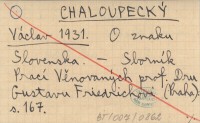 CHALOUPECKÝ
Václav 1931. O znaku
Slovenska. - Sborník
Prací Věnovaných prof. Dru
Gustavu Friedrichovi (Praha)
s. 167.